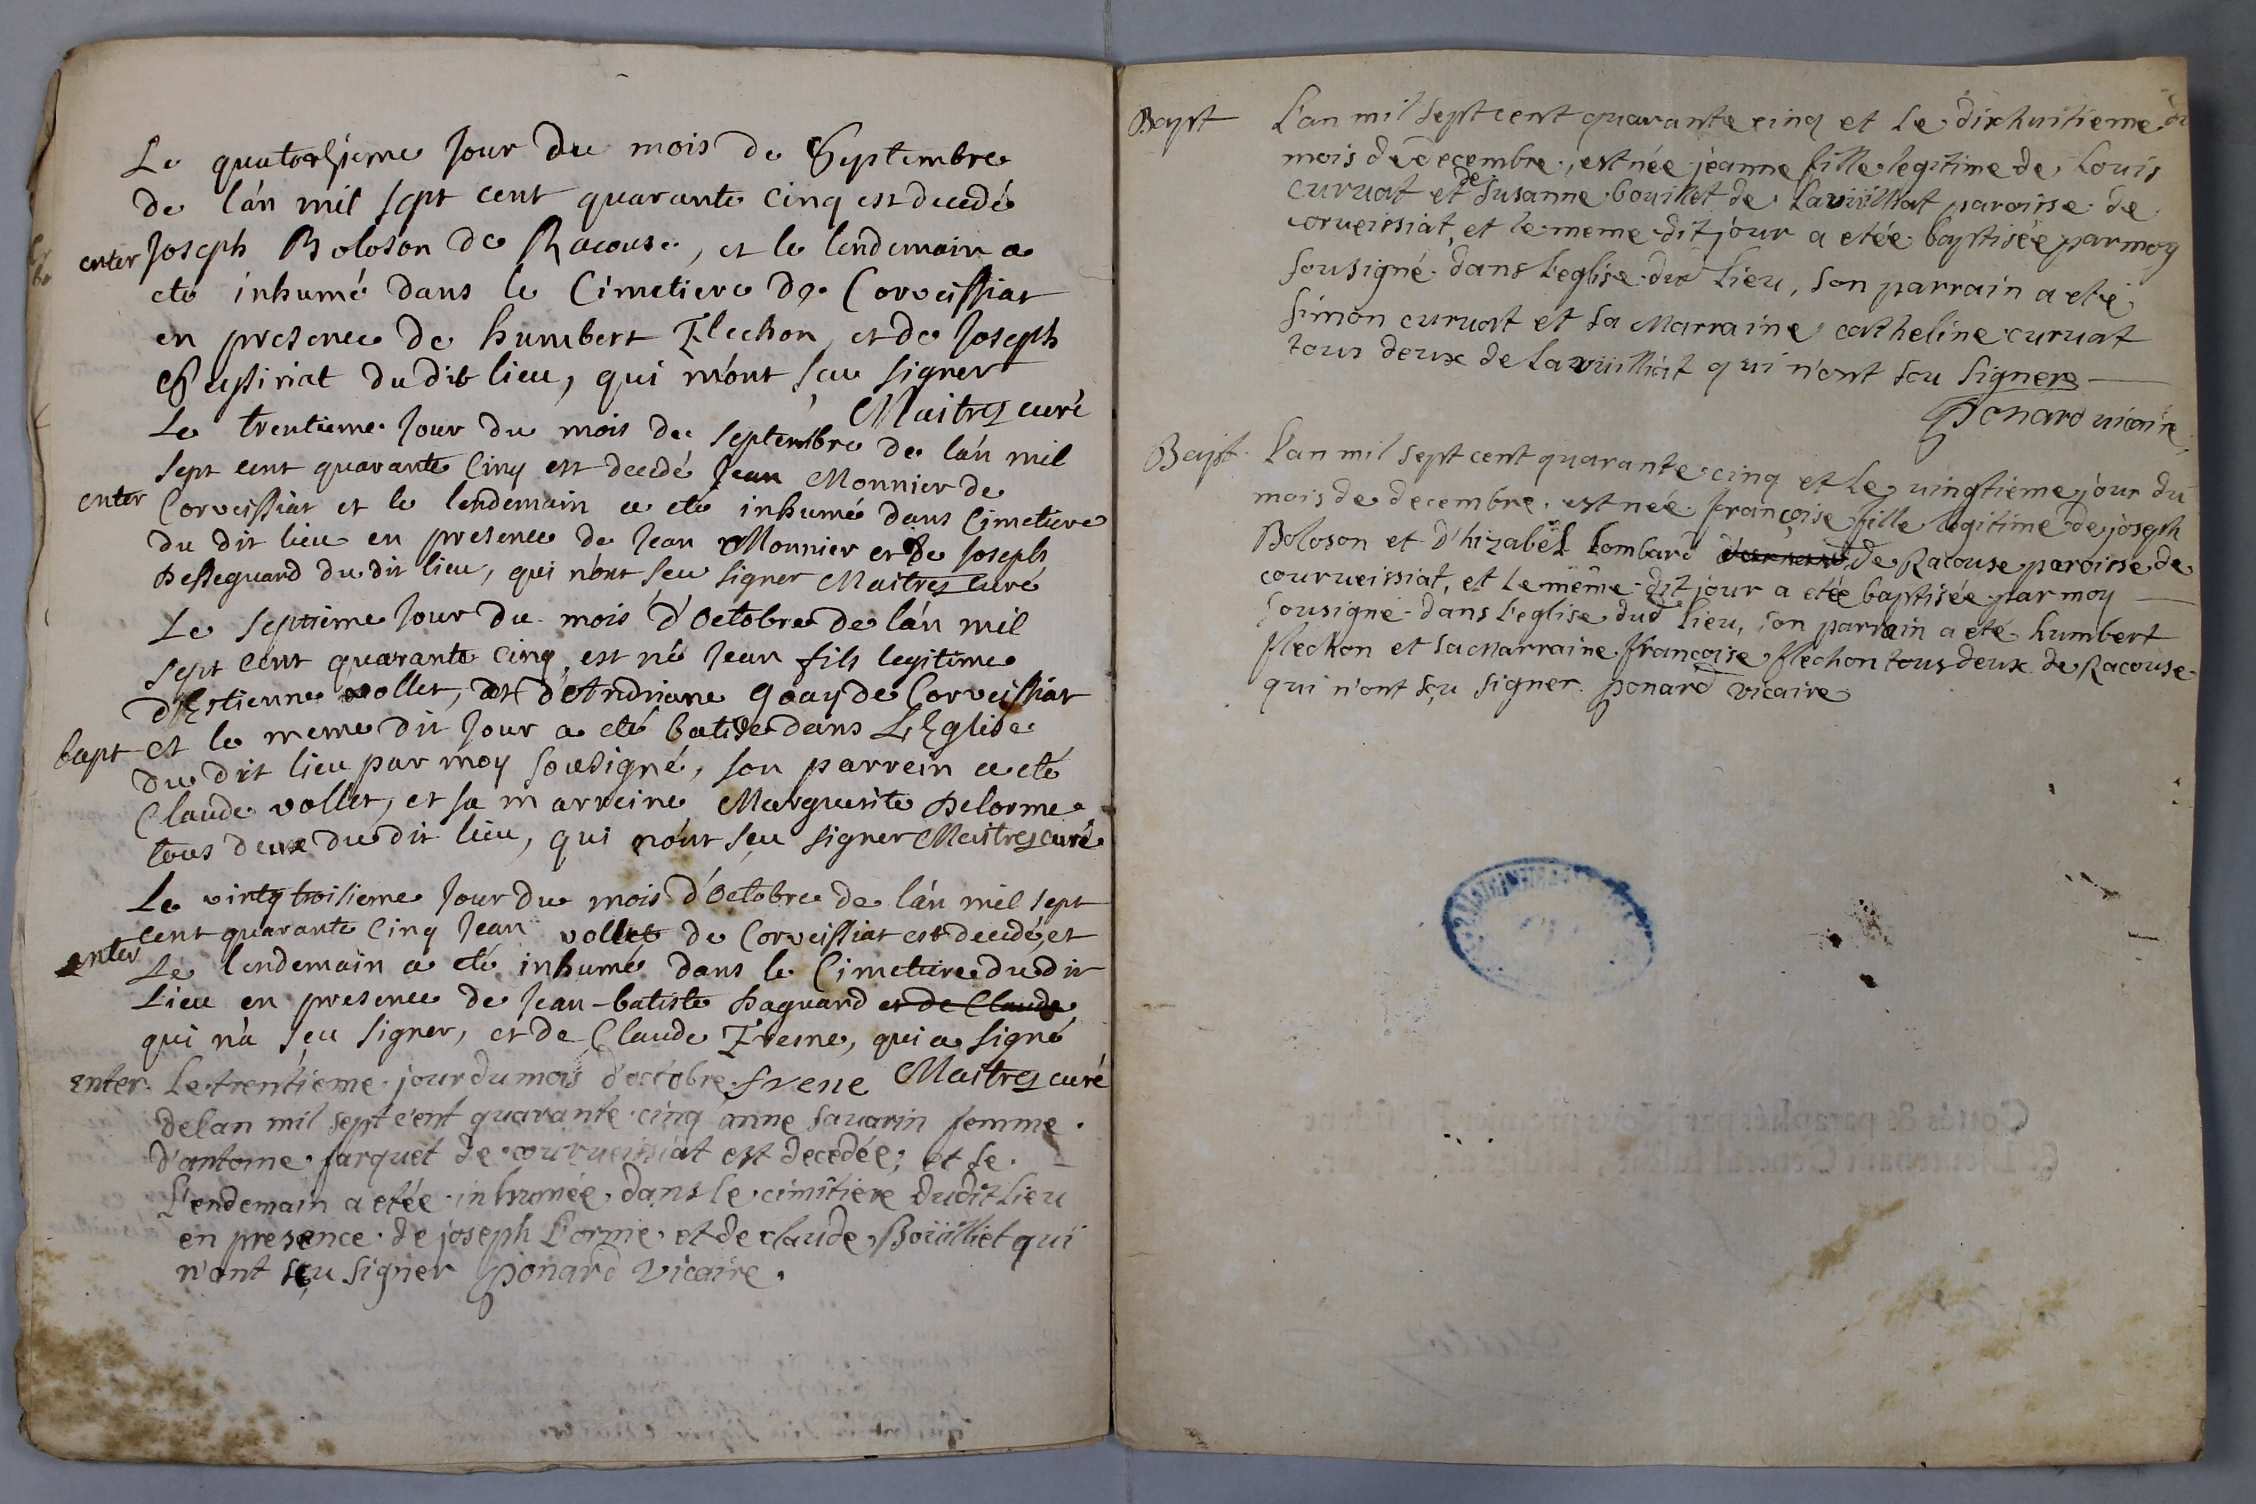 Le quatorzieme Jour du mois de Septembre
de lán mil sept cent quarante Cinq est decedé
enter Joseph Boloson de Racouse, et le lendemain a
eté inhumé dans le Cimetiere de Corveissiat
en presence de humbert Flechon, et de Joseph
du dit lieu, qui nónt sçu signer
Maitrez curé
Le trentieme Jour du mois de septembre de lán mil
sept cent quarante Cinq est decedé Jean Monnier de
enter Corveissiat et le lendemain a eté inhumé dans Cimetiere
du dit lieu en presence de Jean Monnier et de Joseph
du dit lieu, qui nónt sçu signer Maitrez Curé
Le septieme Jour du mois d'Octobre de lán mil
sept cent quarante Cinq, est né Jean fils legitime
d'Estienne vollet, et d'Andriane goay de Corveissiat
bapt et le meme dit Jour a eté batisé dans L'Eglise
du dit lieu par moy sousigné, son parrein a eté
Claude vollet, et sa marreine Marguerite Delorme
tous deux du dit lieu, qui nónt sçu signer Maitrez curé
Le vintg troisieme Jour du mois d'Octobre de lán mil sept
cent quarante Cinq Jean vollet de Corveissiat est decedé, et
enter Le lendemain a eté inhumé dans le Cimetiere du dit
Lieu en presence de Jean-batiste Daguard et de Claude
qui n'a sçu signer, et de Claude Fresne, qui a signé
frene Maitrez curé
enter. Le trentieme jour du mois d'octobre
de lan mil sept cent quarante cinq anne savarin femme
d'antoine farquet de courveissiat est decedée; et le
lendemain a etée inhumée dans le cimitiere dudit Lieu
en presence de joseph Lorme et de claude Boüilliet qui
n'ont sçu signer ponard vicaire.
Bapt L'an mil sept cent quarante cinq et Le dixhuitieme du
mois de decembre, est née jeanne fille legitime de Louis
curvat et de Susanne bouillet de Lavüilliat paroisse de
corveissiat, et le meme dit jour a etée baptisée par moy
sousigné dans l'eglise dud Lieu, son parrain a eté
simon curvat et sa Marraine catheline curvat
tous deux de Lavuilliat qui n'ont sçu signere
Ponard vicaire
Bapt. L'an mil sept cent quarante cinq et Le vingtieme jour du
mois de decembre. est née françoise fille legitime de joseph
Boloson et d'hizabél Lombard de Racouse paroisse de
courveissiat, et Le même dit jour a etée baptisée par moy
sousigné dans l'eglise dud Lieu, son parrain a eté humbert
flechon et sa Marraine françoise flechon tous deux de Racouse
qui n'ont sçu signer. ponard vicaire